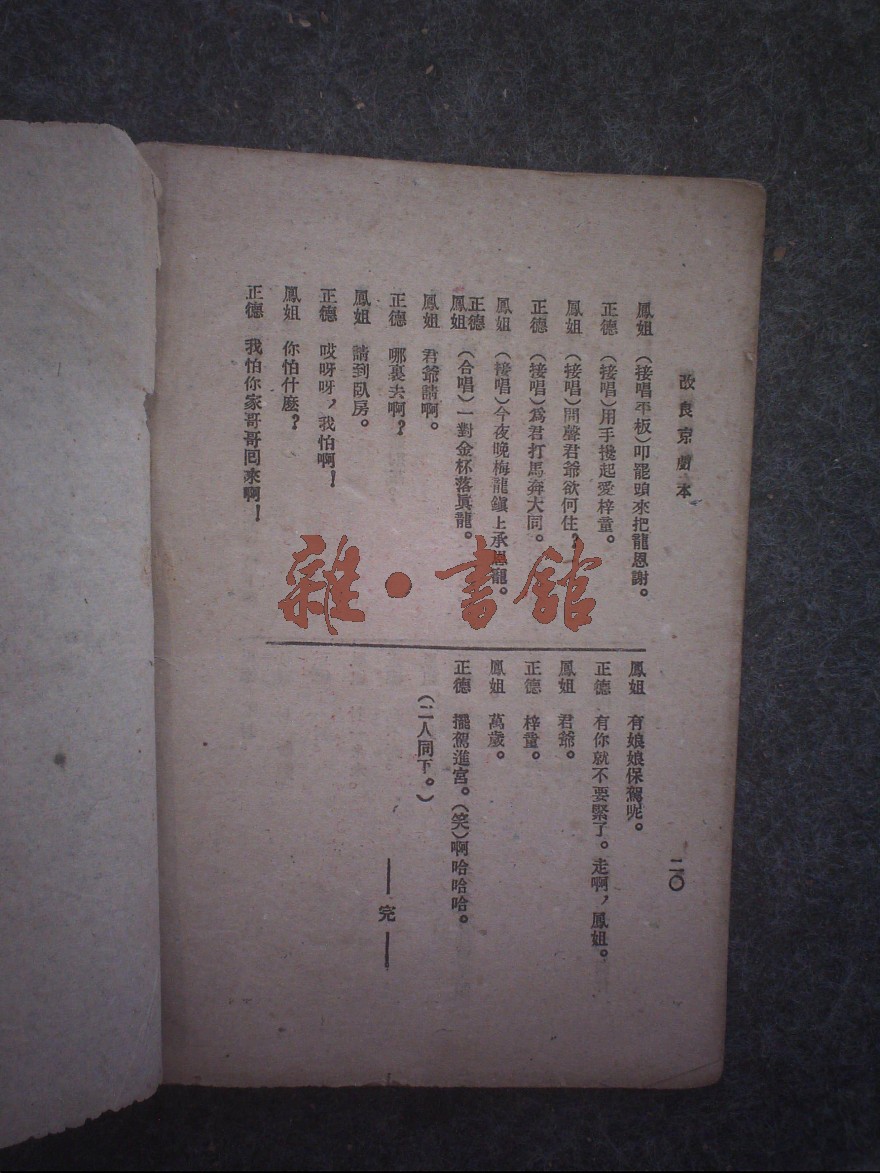 改良京劇本
二〇
鳳姐　（接唱平板）叩罷頭來把龍恩謝。
正德　（接唱）用手攙起愛梓童。
鳳姐　（接唱）問聲君爺欲何住？
正德　（接唱）爲君打馬奔大同。
鳳姐　（接唱）今夜晚梅龍鎭上承恩寵。
正德鳳姐　（合唱）一對金杯落眞龍。
鳳姐　君爺請啊。
正德　哪裏去啊？
鳳姐　請到臥房。
正德　哎呀呀，我怕啊！
鳳姐　你怕什麽？
正德　我怕你家哥哥囘來啊！
鳳姐　有娘娘保駕呢。
正德　有你就不要緊了。走啊，鳳姐。
鳳姐　君爺。
正德　梓童。
鳳姐　萬歲。
正德　擺駕進宮。（笑）啊哈哈哈。
（二人同下。）
——完——
雜·書館